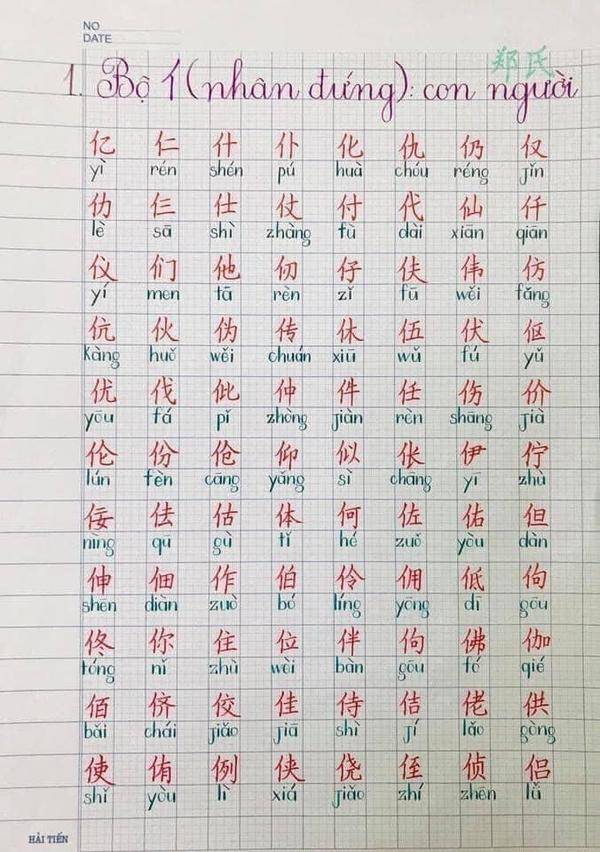 NO
DATE
郑氏
1. Bộ 亻(nhân đứng): con người
亿 仁 什 仆 化 仇 仍 仅
yì rén shén pú huà chóu réng jǐn
仂 仨 仕 仗 付 代 仙 仟
lè sā shì zhàng fù dài xiān qiān
仪 们 他 仞 仔 伕 伟 仿
yí men tā rèn zǐ fū wěi fǎng
伉 伙 伪 传 休 伍 伏 伛
kàng huǒ wěi chuán xiū wǔ fú yǔ
优 伐 仳 仲 件 任 伤 价
yōu fá pǐ zhòng jiàn rèn shāng jià
伦 份 伧 仰 似 伥 伊 伫
lún fèn cāng yǎng sì chāng yī zhù
佞 佉 估 体 何 佐 佑 但
nìng qū gù tǐ hé zuǒ yòu dàn
伸 佃 作 伯 伶 佣 低 佝
shēn diàn zuò bó líng yōng dī gōu
佟 你 住 位 伴 佝 佛 伽
tóng nǐ zhù wèi bàn gōu fó qié
佰 侪 佼 佳 侍 佶 佬 供
bǎi chái jiǎo jiā shì jí lǎo gòng
使 侑 例 侠 侥 侄 侦 侣
shǐ yòu lì xiá jiǎo zhí zhēn lǚ
HẢI TIẾN